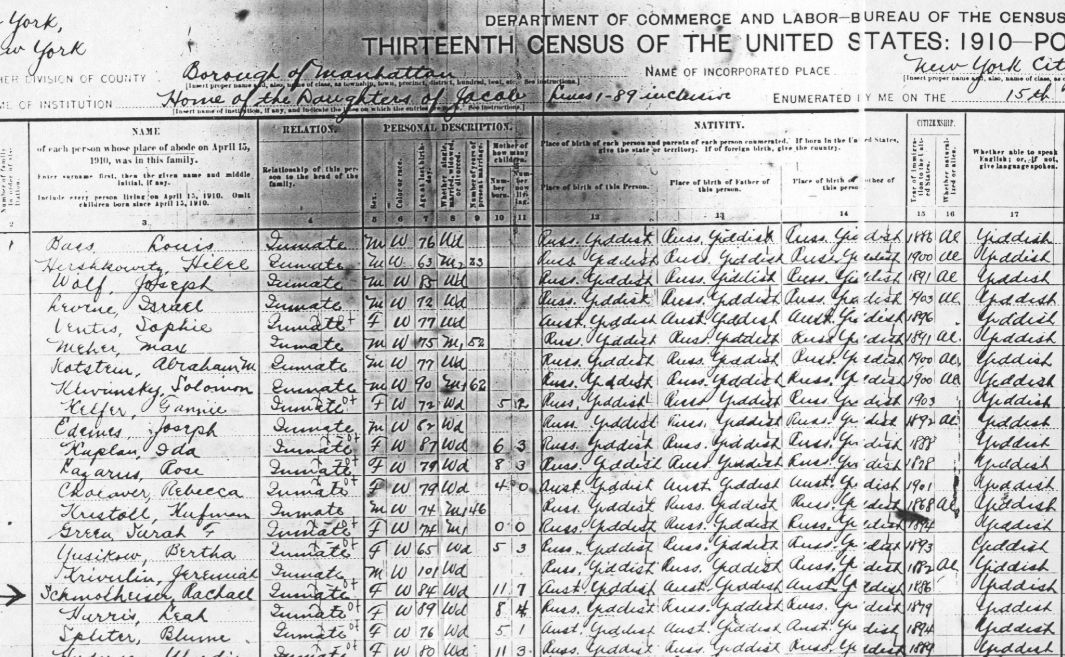 York,
DEPARTMENT OF COMMERCE AND LABOR—BUREAU OF THE CENSUS
ew York
THIRTEENTH CENSUS OF THE UNITED STATES: 1910—PO
HER DIVISION OF COUNTY Borough of Manhattan NAME OF INCORPORATED PLACE New York Cit
ME OF INSTITUTION Home of the Daughters of Jacob Lines 1-89 inclusive ENUMERATED BY ME ON THE 15th
NAME RELATION. PERSONAL DESCRIPTION. NATIVITY. CITIZENSHIP.
of each person whose place of abode on April 15, 1910, was in this family.
Enter surname first, then the given name and middle initial, if any.
Include every person living on April 15, 1910. Omit children born since April 15, 1910.
Relationship of this person to the head of the family.
Sex. Color or race.
Mother of how many children.
Number born. Number now living.
Place of birth of each person and parents of each person enumerated. If born in the United States, give the state or territory. If of foreign birth, give the country.
Place of birth of this Person. Place of birth of Father of this person. Place of birth of Mother of this person.
Whether able to speak English; or, if not, give language spoken.
2 3 4 5 6 7 8 9 10 11 12 13 14 15 16 17
1 Louis Inmate M W 76 Wd Russ. Yiddish Russ. Yiddish Russ. Yiddish 1886 Al Yiddish
Hershkowitz, Inmate M W 63 23 Russ. Yiddish Russ. Yiddish Russ. Yiddish 1900 Al Yiddish
Wolf, Joseph Inmate M W 85 Wd Russ. Yiddish Russ. Yiddish Russ. Yiddish 1891 Al Yiddish
Levine, Israel Inmate M W 72 Wd Russ. Yiddish Russ. Yiddish Russ. Yiddish 1903 Al Yiddish
Sophie Inmate F W 77 Wd Aust. Yiddish Aust. Yiddish Aust. Yiddish 1896 Yiddish
Max Inmate M W 75 M1 52 Russ. Yiddish Russ. Yiddish Russ. Yiddish 1891 Al Yiddish
Abraham M Inmate M W 77 Wd Russ. Yiddish Russ. Yiddish Russ. Yiddish 1900 Al Yiddish
Solomon Inmate M W 90 M1 62 Russ. Yiddish Russ. Yiddish Russ. Yiddish 1900 Al Yiddish
Fannie Inmate F W 72 Wd 5 2 Russ. Yiddish Russ. Yiddish Russ. Yiddish 1903 Yiddish
Joseph Inmate M W 82 Wd Russ. Yiddish Russ. Yiddish Russ. Yiddish 1892 Al Yiddish
Kaplan, Ida Inmate F W 87 Wd 6 3 Russ. Yiddish Russ. Yiddish Russ. Yiddish 1888 Yiddish
Lazarus, Rose Inmate F W 79 Wd 8 3 Russ. Yiddish Russ. Yiddish Russ. Yiddish 1878 Yiddish
Rebecca Inmate F W 79 Wd 4 0 Aust. Yiddish Aust. Yiddish Aust. Yiddish 1901 Yiddish
Kristoll, Inmate M W 74 M1 46 Russ. Yiddish Russ. Yiddish Russ. Yiddish 1868 Al Yiddish
Green, Sarah F Inmate F W 74 M1 0 0 Russ. Yiddish Russ. Yiddish Russ. Yiddish 1894 Yiddish
Yusikow, Bertha Inmate F W 65 Wd 5 3 Russ. Yiddish Russ. Yiddish Russ. Yiddish 1893 Yiddish
Krivulin, Jeremiah Inmate M W 101 Wd Russ. Yiddish Russ. Yiddish Russ. Yiddish 1882 Al Yiddish
Schmolheiser, Rachael Inmate F W 84 Wd 11 7 Aust. Yiddish Aust. Yiddish Aust. Yiddish 1886 Yiddish
Harris, Leah Inmate F W 89 Wd 8 4 Russ. Yiddish Russ. Yiddish Russ. Yiddish 1879 Yiddish
Blume Inmate F W 76 Wd 5 1 Aust. Yiddish Aust. Yiddish Aust. Yiddish 1894 Yiddish
Inmate F W 80 Wd 11 3 Russ. Yiddish Russ. Yiddish Russ. Yiddish 1889 Yiddish